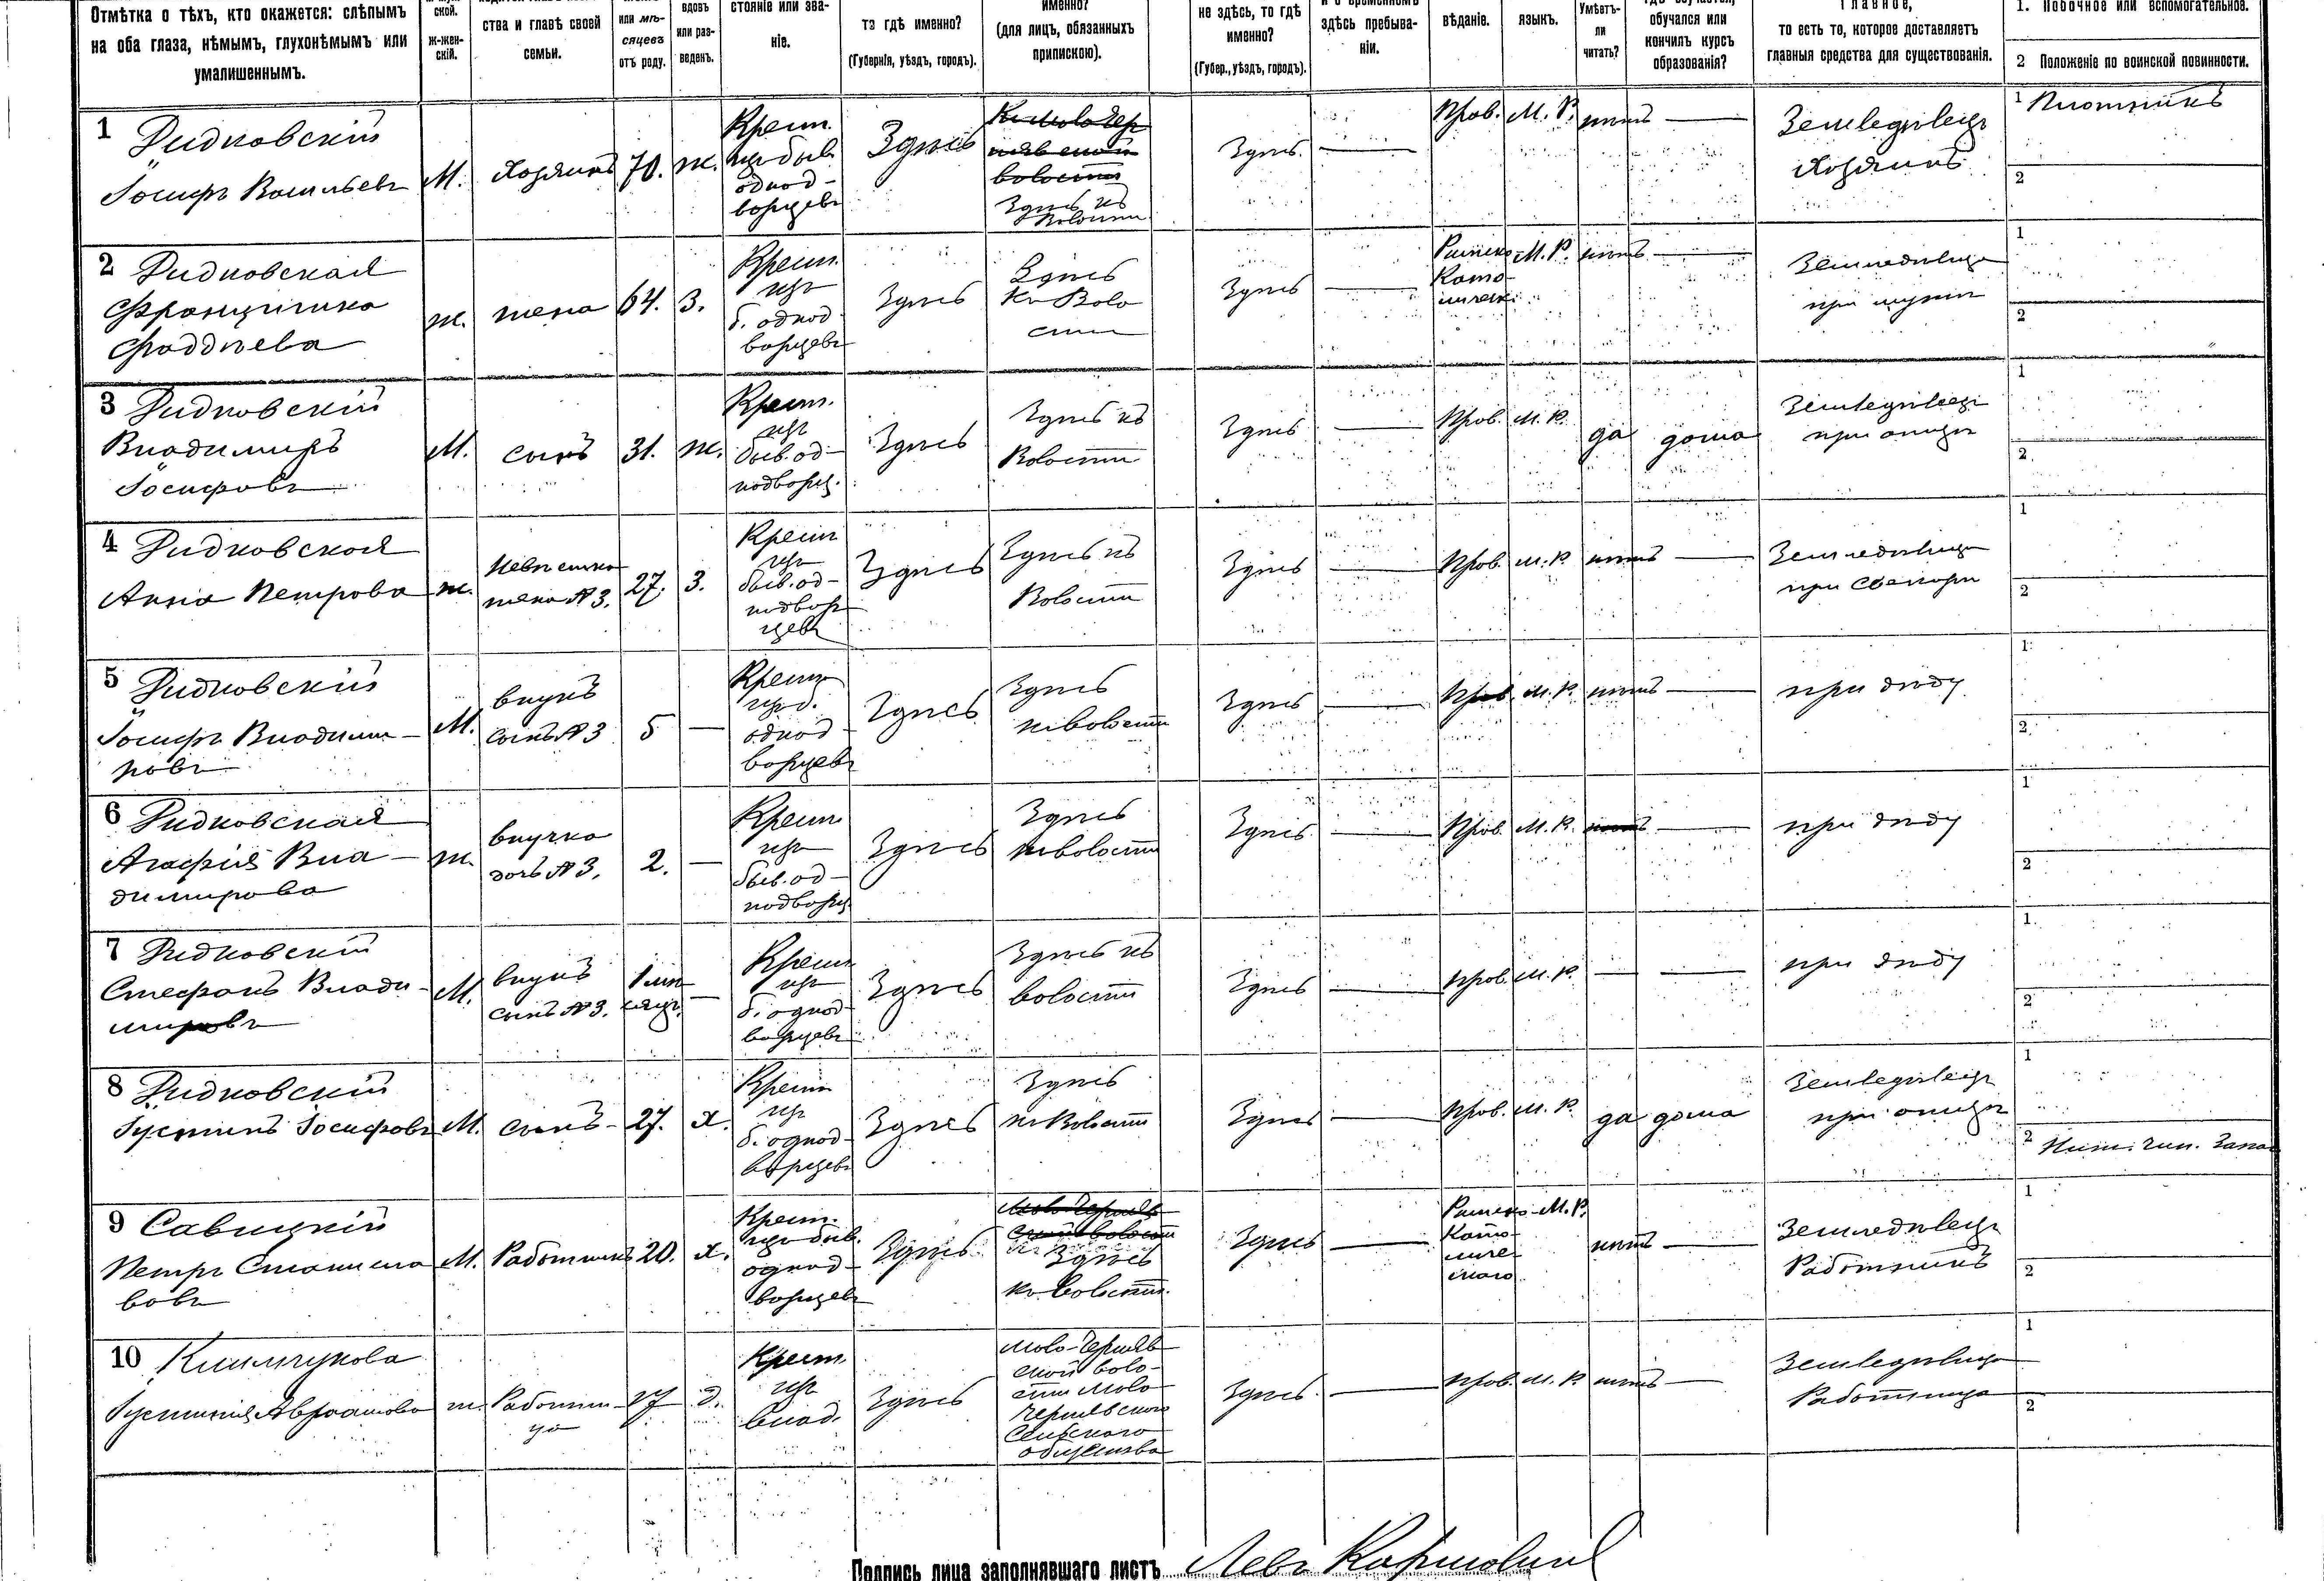 Отмѣтка о тѣхъ, кто окажется: слѣпымъ
на оба глаза, нѣмымъ, глухонѣмымъ или
умалишеннымъ.
ской.
ж-жен-
скій.
ства и главѣ своей
семьи.
или мѣ-
сяцевъ
отъ роду.
вдовъ
или раз-
веденъ.
стояніе или зва-
ніе.
та гдѣ именно?
(Губернія, уѣздъ, городъ).
именно?
(для лицъ, обязанныхъ
припискою).
не здѣсь, то гдѣ
именно?
(Губер., уѣздъ, городъ).
и о временномъ
здѣсь пребыва-
ніи.
вѣданіе.
языкъ.
Умѣетъ-
ли
читать?
гдѣ обучается,
обучался или
кончилъ курсъ
образованія?
Главное,
то есть то, которое доставляетъ
главныя средства для существованія.
1. Побочное или вспомогательное.
2 Положеніе по воинской повинности.
1 Дидковскій
Іосифъ Васильевъ
М.
Хозяинъ
70.
ж.
Крест.
изъ быв.
однод-
ворцевъ
Здѣсь
волости
Здѣсь къ
Волости
Здѣсь
Прав.
М. Р.
нѣтъ
Земледѣлецъ
Хозяинъ
1 Плотникъ
2
2 Дидковская
Францишка
Фаддѣева
ж.
жена
64.
З.
Крест.
изъ
б. однод-
ворцевъ
Здѣсь
Здѣсь
къ Воло
сти
Здѣсь
Римско
Като-
лическ.
М. Р.
нѣтъ
Земледѣлица
при мужѣ
1
2
3 Дидковскій
Владимиръ
Іосифовъ
М.
сынъ
31.
ж.
Крест.
изъ
быв. од-
нодворц.
Здѣсь
Здѣсь къ
Волости
Здѣсь
Прав.
М. Р.
да
дома
Земледѣлецъ
при отцѣ
1
2
4 Дидковская
Анна Петрова
ж.
Невѣстка
жена №3.
27.
З.
Крест
изъ
быв. од-
нодвор
цевъ
Здѣсь
Здѣсь къ
Волости
Здѣсь
Прав.
М. Р.
нѣтъ
Земледѣлица
при свекорѣ
1
2
5 Дидковскій
Іосифъ Влодими-
ровъ
М.
внукъ
сынъ №3
5
Крест
изъ б.
однод-
ворцевъ
Здѣсь
Здѣсь
къ волости
Здѣсь
Прав.
М. Р.
нѣтъ
при дѣду
1
2
6 Дидковская
Агафія Вла-
димирова
ж.
внучка
дочь №3.
2.
Крест
изъ
быв. од-
нодворц.
Здѣсь
Здѣсь
къ волости
Здѣсь
Прав.
М. Р.
нѣтъ
при дѣду
1
2
7 Дидковскій
Стефанъ Влади-
мировъ
М.
внукъ
сынъ №3.
1 мѣ
сяцъ.
Крест
изъ
б. однод-
ворцевъ
Здѣсь
Здѣсь къ
волости
Здѣсь
Прав.
М. Р.
при дѣду
1
2
8 Дидковскій
Іустинъ Іосифовъ
М.
сынъ
27.
Х.
Крест
изъ
б. однод-
ворцевъ
Здѣсь
Здѣсь
къ Волости
Здѣсь
Прав.
М. Р.
да
дома
Земледѣлецъ
при отцѣ
1
2 Ниж. чин. Запас
9 Савицкій
Петръ Станисла
вовъ
М.
Работникъ
20.
Х.
Крест.
изъ быв.
однод-
ворцевъ
Здѣсь
Здѣсь
къ волости.
Здѣсь
Римско
Като-
личе-
скаго
М. Р.
нѣтъ
Земледѣлецъ
Работникъ
1
2
10 Климчукова
Іустинія Авраамова
ж.
Работни-
ца
17
Д.
Крест
изъ
влад.
Здѣсь
Мало-Черняв
ской воло-
сти Мало
Чернявского
Сельскаго
общества
Здѣсь
Прав.
М. Р.
нѣтъ
Земледѣлица
Работница
1
2
Подпись лица заполнявшаго листъ